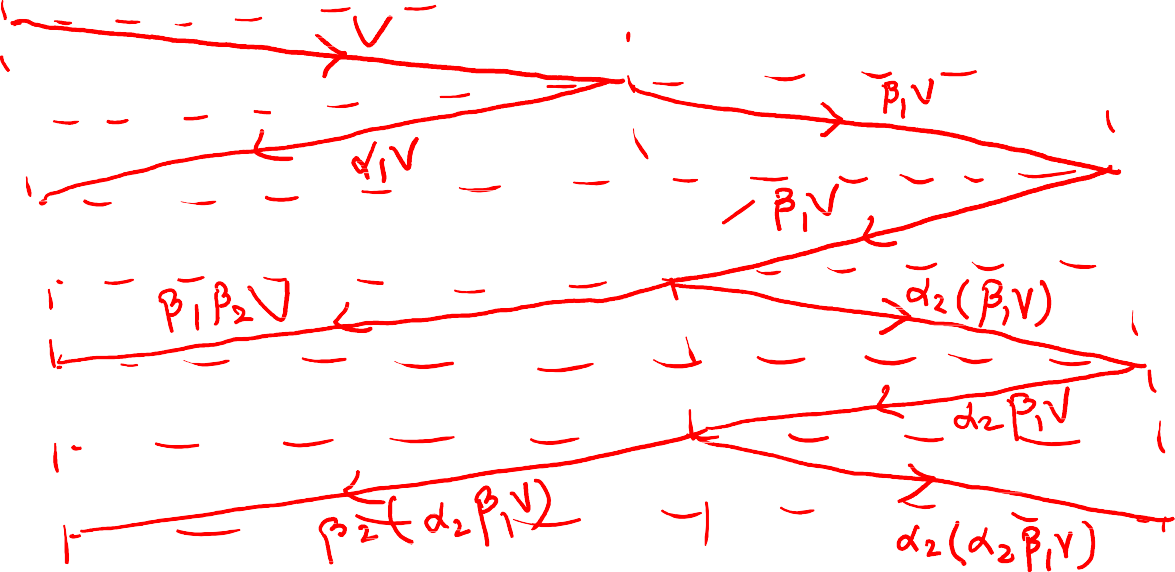 V
β₁V
α₁V
β₁V
β₁β₂V
α₂(β₁V)
α₂β₁V
β₂(α₂β₁V)
α₂(α₂β₁V)